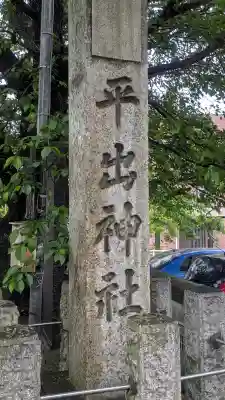 平出神社